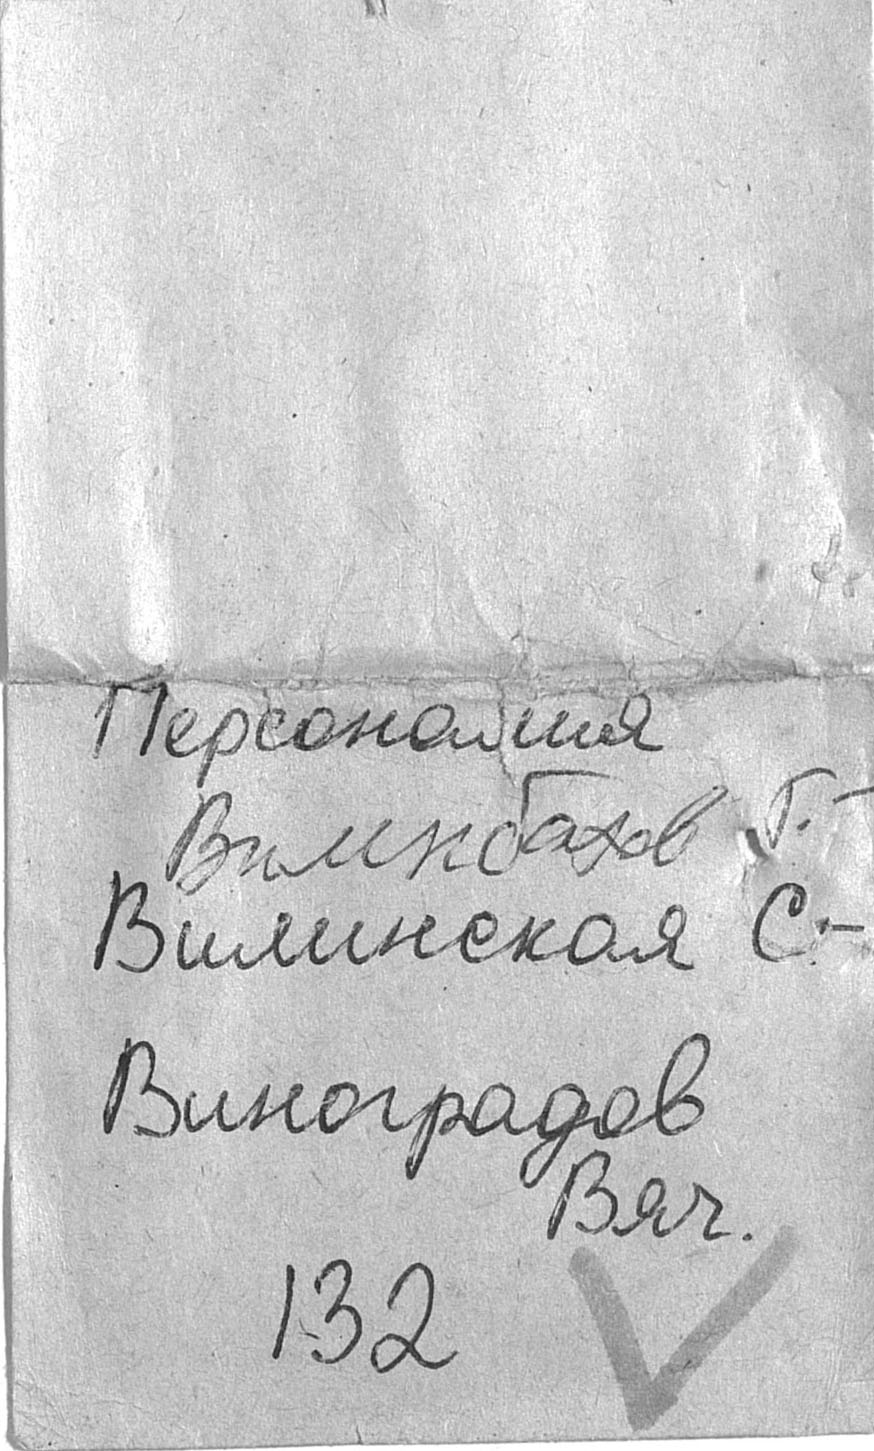 Персоналия
Вилинбахов Г. –
Вилинская С. –
Виноградов
Вяч.
132